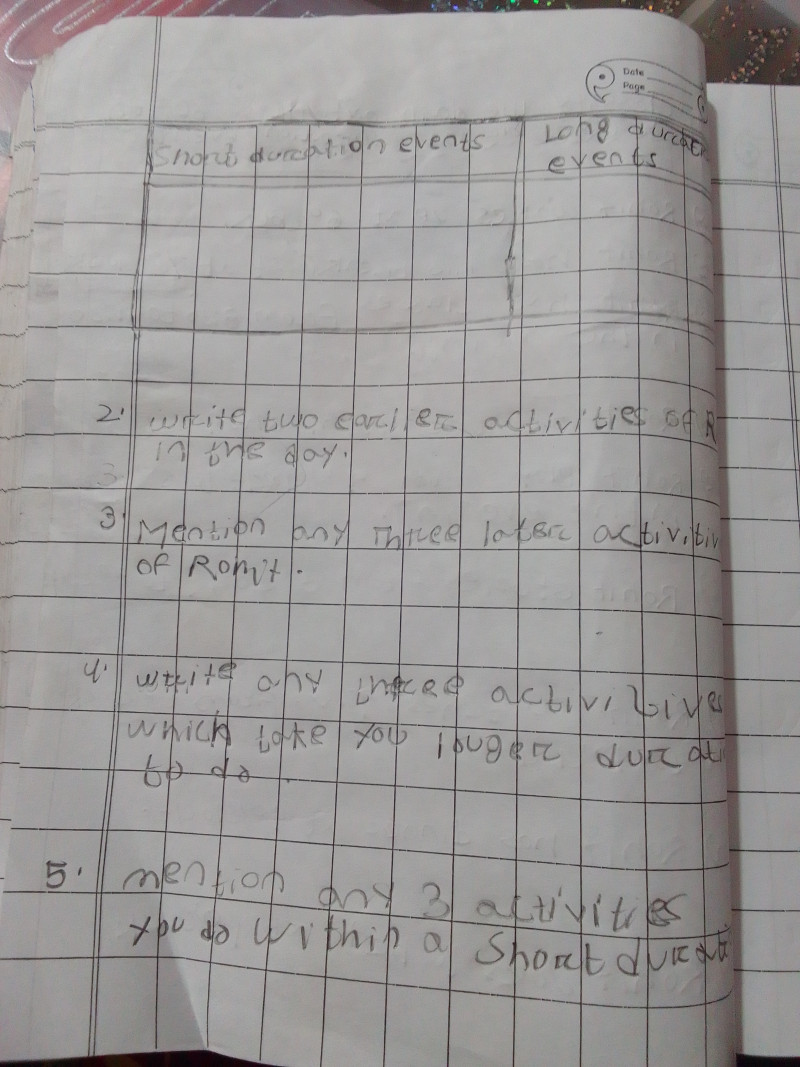 Date
Page
Short duration events
Long durat
events
2. write two earlier activities of R
in the day.
3
3. Mention any three later activitiv
of Romit.
4. write any three activitives
which take you longer durat
to do.
5. mention any 3 activities
you do within a short durat